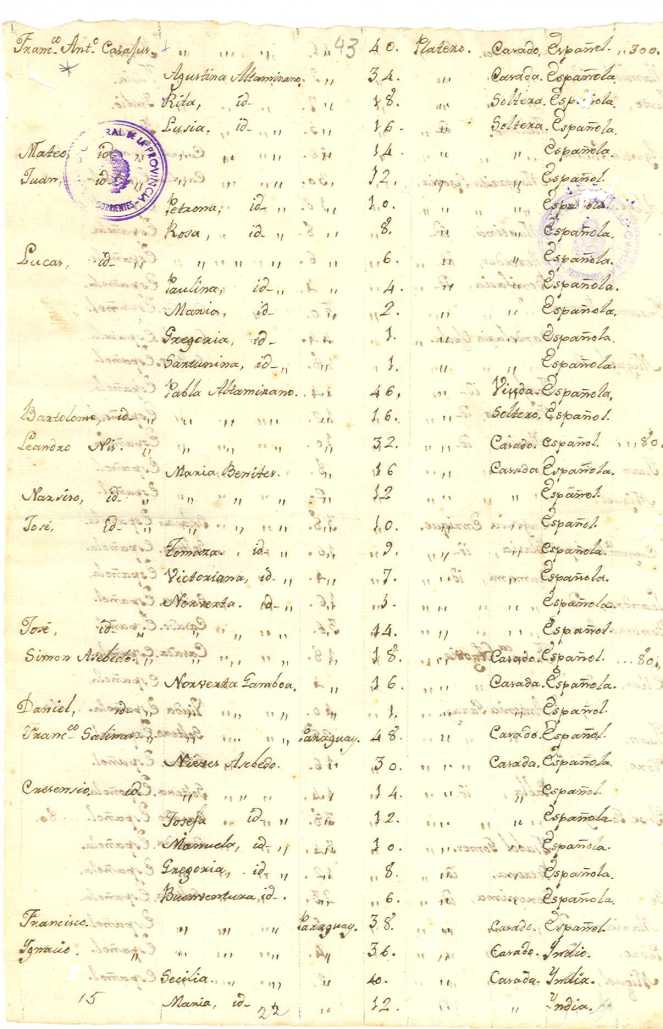 Fran.co Ant.o Casafus „ „ „ „ 43 40. Platero. Casado. Español. „300.
Agustina Altamirano. „ 34. „ Casada. Española
Rita, id „ 18. „ Soltera. Española.
Lusia. id „ 16. „ Soltera. Española.
Mateo, id „ 14. „ „ Española.
Juan, id „ 12. „ „ Español.
Petrona, id „ 10. „ „ Española.
Rosa, id „ 8. „ „ Española.
Lucas, id „ „ „ „ „ 6. „ „ Española.
Paulina, id „ 4. „ „ Española.
Maria, id „ 2. „ „ Española.
Gregoria, id „ 1. „ „ Española.
Santunina, id „ 1. „ „ Española.
Pabla Altamirano. „ 46. „ Viuda. Española.
Bartolome, id „ „ „ „ 16. „ Soltero. Español.
Leandro Nis. „ „ „ „ 32. „ Casado. Español. ...80.
Maria Benites. „ 16 „ Casada Española.
Narsiso, id. „ „ „ „ 12 „ „ Español.
José, id „ „ „ „ 10. „ „ Español.
Tomaza. id „ 9. „ „ Española.
Victoriana, id „ 7. „ „ Española.
Norverta. id „ „ „ Española.
José, id „ „ „ „ 14. „ „ Español.
Simon Asebedo. „ „ „ „ 18. „ Casado. Español. ...80.
Norverta Gamboa. „ 16. „ Casada. Española.
Daniel, id „ „ „ „ 1. „ „ Español.
Fran.co „ „ „ Paraguay. 48. „ Casado. Español.
Nieves Asebedo. „ 30. „ Casada. Española.
Cresensio, id „ „ „ „ 14. „ „ Español.
Josefa id „ 12. „ „ Española.
Manuela, id „ 10. „ „ Española.
Gregoria, id „ 8. „ „ Española.
Buenventura, id. „ 6. „ „ Española.
Francisco. „ „ „ Paraguay. 38. „ Casado. Español.
Ygnacio. „ „ „ „ 36. „ Casado. Indio.
Secilia „ „ „ 40. „ Casada. Yndia.
15 Maria, id 22 „ 12. „ „ Yndia.